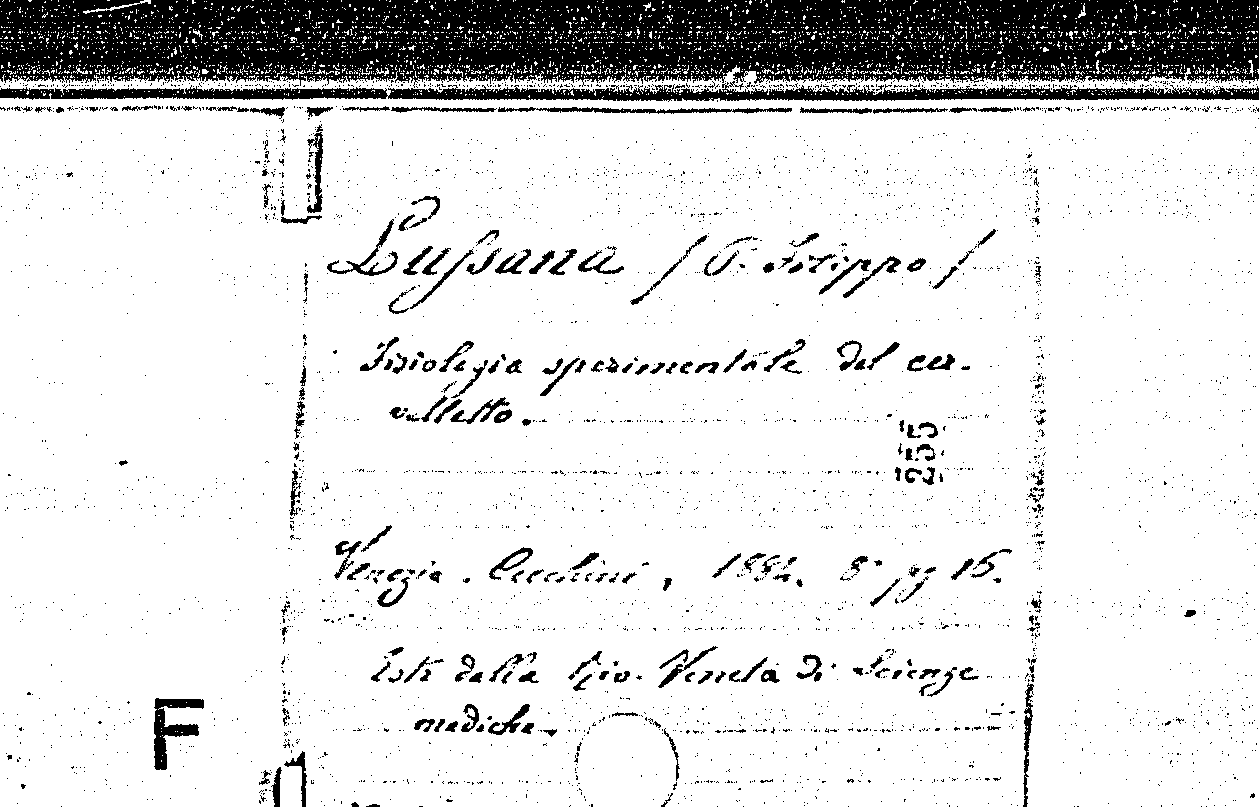 Lussana / P. Filippo /
Fisiologia sperimentale del cer-
velletto.
255
Venezia. Cecchini, 1884. 8° pg 16.
Estr. dalla Riv. Veneta di Scienze
mediche.
F